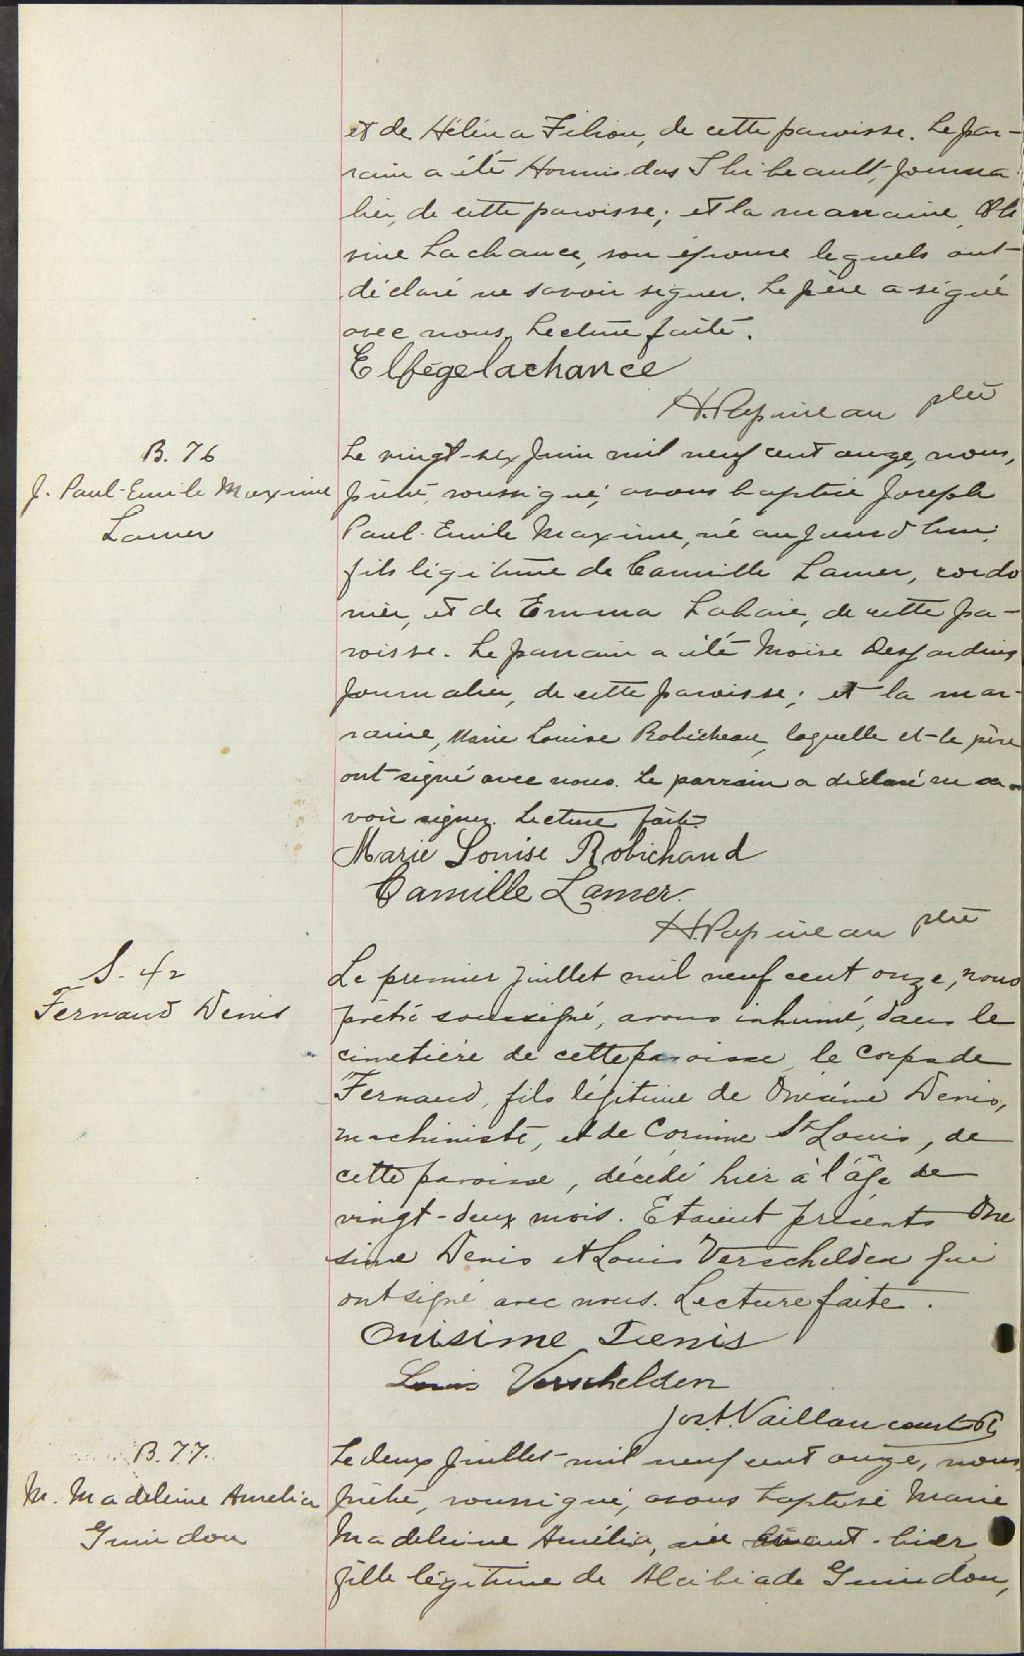 et de Héléna Filion, de cette paroisse. Le par-
rain a été Hormisdas Thibeault, journa
lier, de cette paroisse; et la marraine
sine Lachance, son épouse lequels ont
déclaré ne savoir signer. Le père a signé
avec nous. Lecture faite.
Elfégelachance
H. Papineau ptre
B. 76
J. Paul-Emile Maxime
Lamer
Le vingt-six Juin mil neuf cent onze, nous,
prêtre, soussigné, avons baptisé Joseph
Paul-Emile Maxime, né aujourd'hui,
fils légitime de Camille Lamer, cordo
nier, et de Emma Labaie, de cette pa-
roisse. Le parrain a été Moïse Desjardins
journalier, de cette paroisse; et la mar-
raine, Marie Louise Robicheau, laquelle et le père
ont signé avec nous. Le parrain a déclaré ne sa-
voir signer. Lecture faite.
Marie Louise Robichaud
Camille Lamer.
H. Papineau ptre
S. 42
Fernand Denis
Le premier juillet mil neuf cent onze, nous
prêtre soussigné, avons inhumé, dans le
cimetière de cette paroisse, le corps de
Fernand, fils légitime de Onésime Denis,
machiniste, et de Corinne St Louis, de
cette paroisse, décédé hier à l'âge de
vingt-deux mois. Etaient présents One
sime Denis et Louis Verschelden qui
ont signé avec nous. Lecture faite.
Onisime Denis
Louis Verschelden
Jos. A. Vaillancourt
B. 77.
M. Madeleine Amelia
Guindon
Le deux Juillet mil neuf cent onze, nous,
prêtre, soussigné, avons baptisé Marie
Madeleine Amélia, née avant-hier,
fille légitime de Alcibiade Guindon,